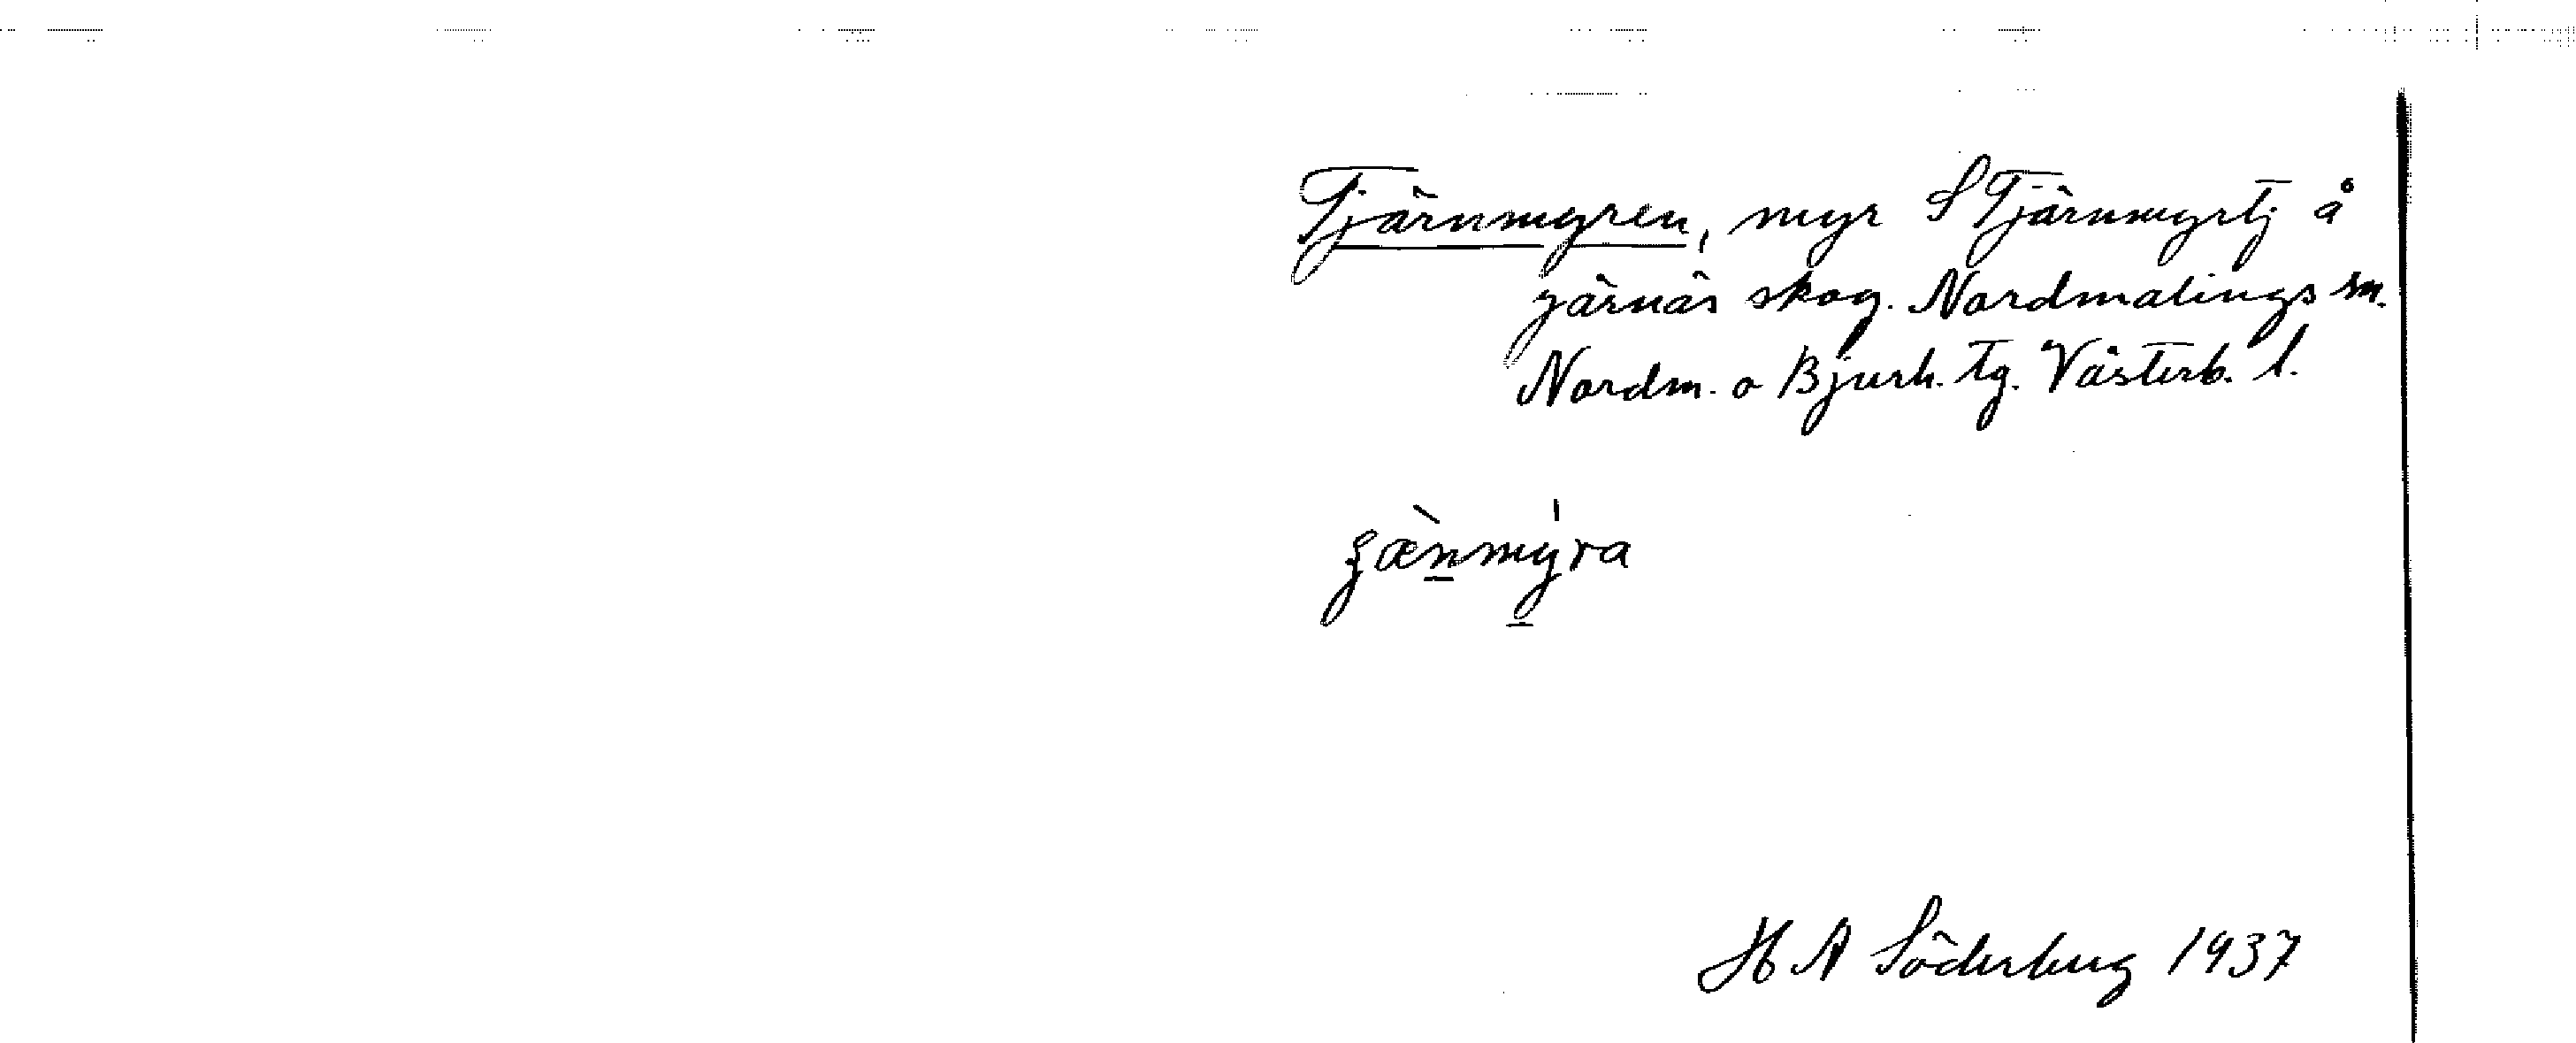 Tjärnmyren, myr S Tjärnmyrtj å
järnäs skog. Nordmalings sn.
Nordm. o Bjurh. tg. Västerb. l.
H A Söderberg 1937